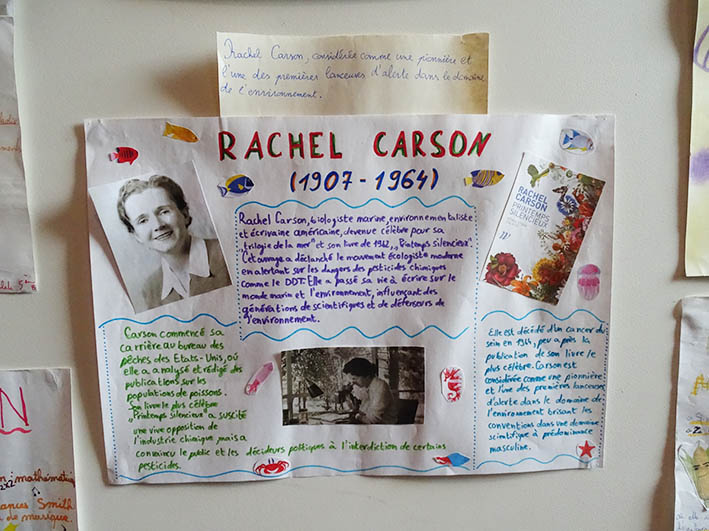 Rachel Carson, considérée comme une pionnière et
l'une des premières lanceuses d'alerte dans le domaine
de l'environnement.
RACHEL CARSON
(1907-1964)
Rachel Carson, biologiste marine, environnementaliste
et écrivaine américaine, devenue célèbre pour sa
„trilogie de la mer" et son livre de 1962, „Pintemps silencieux".
Cet ouvrage a déclanché le mouvement écologiste moderne
en alertant sur les dangers des pesticides chimiques
comme le DDT. Elle a passé sa vie à écrire sur le
monde marin et l'environnement, influençant des
générations de scientifiques et de défenseurs de
l'environnement.
RACHEL
CARSON
PRINTEMPS
SILENCIEUX
Carson commencé sa
carrière au bureau des
pêches des Etats-Unis, où
elle a analysé et rédigé des
publications sur les
populations de poissons.
Son livre le plus célèbre
„Printemps silencieux" a suscité
une vive opposition de
l'industrie chimique mais a
convaincu le public et les décideurs politiques à l'interdiction de certains
pesticides.
Elle est décédé d'un cancer du
sein en 1964, peu après la
publication de son livre le
plus célèbre. Carson est
considérée comme une pionnière
et l'une des premières lanceuses
d'alerte dans le domaine de
l'environement brisant les
conventions dans une domaine
scientifique à prédominance
masculine.
N
mathématic
Smith
de musique.